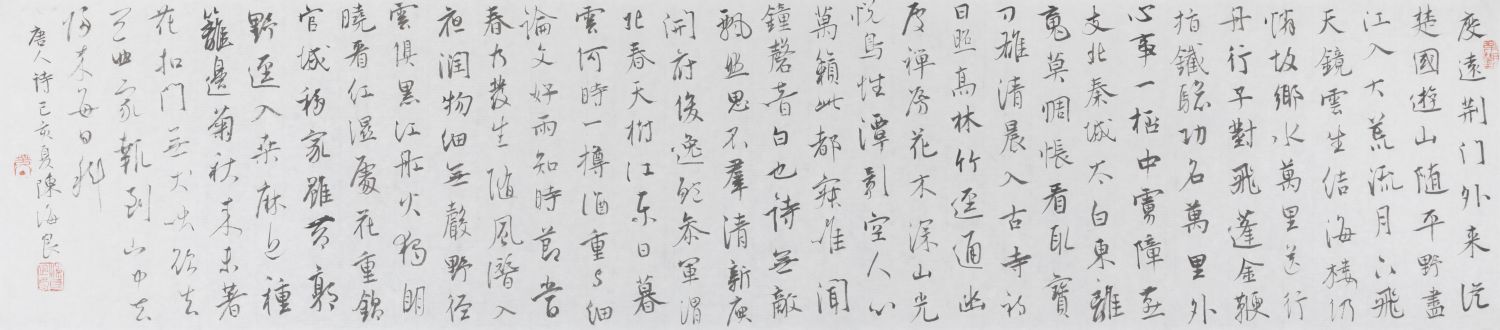 度遠荆门外来從
楚國遊山随平野盡
江入大荒流月下飛
天鏡雲生结海楼仍
憐故鄉水萬里送行
舟行子對飛蓬金鞭
指鐵驄功名萬里外
心事一杯中虜障燕
支北秦城太白東離
魂莫惆悵看取寶
刀雄清晨入古寺初
日照高林竹逕通幽
處禅房花木深山光
悦鸟性潭影空人心
萬籟此都寂唯聞
鐘磬音白也诗無敵
飄然思不羣清新庾
開府俊逸鮑参軍渭
北春天樹江東日暮
雲何時一樽酒重与細
論文好雨知時節當
春乃發生随風潛入
夜润物细無聲野径
雲俱黑江船火獨明
曉看红濕處花重錦
官城移家雖带郭
野逕入桑麻近種
籬邊菊秋来未著
花扣門無犬吠欲去
问西家報到山中去
归来每日斜
唐人诗己亥夏陳海良